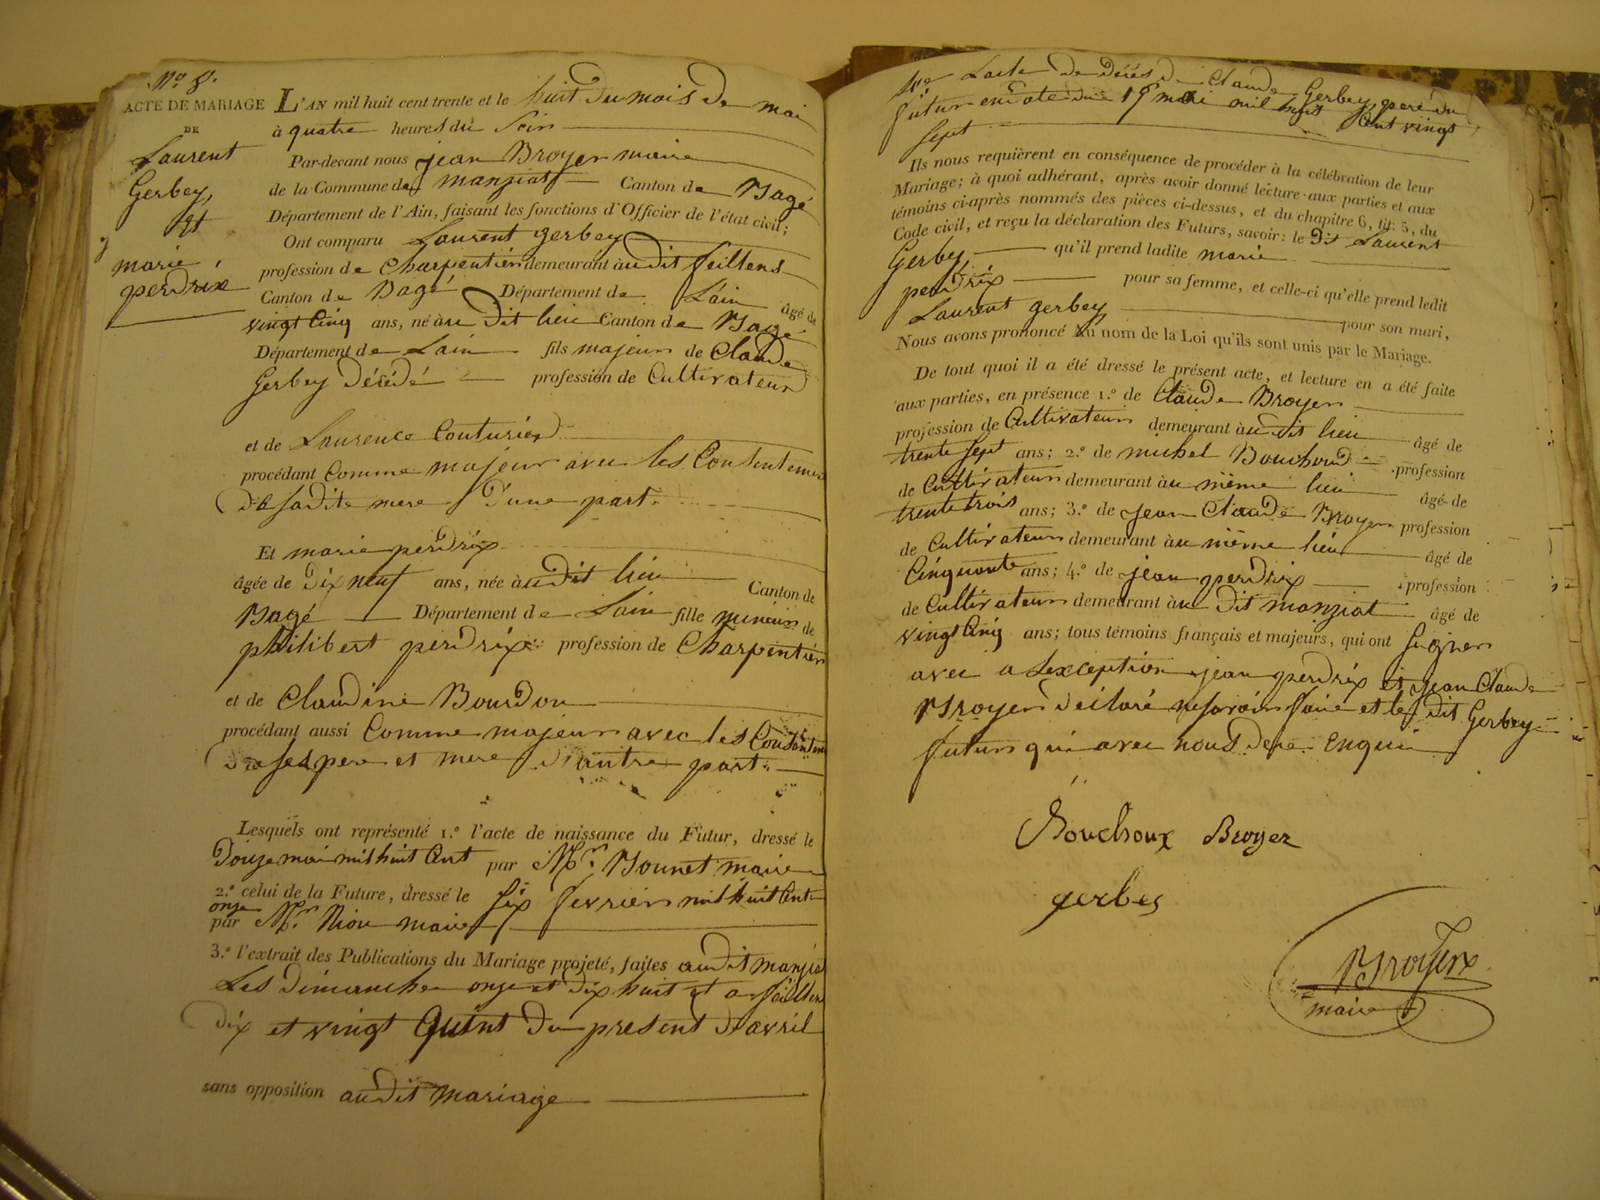 N.º 8.
ACTE DE MARIAGE
DE
Laurent
Gerbey,
Et
marie
perdrix
L'AN mil huit cent trente et le huit du mois de mai
à quatre heures du Soir
Par-devant nous jean Broyer maire
de la Commune de manziat Canton de Bagé
Département de l'Ain, faisant les fonctions d'Officier de l'état civil;
Ont comparu Laurent gerbey
profession de Charpentier demeurant àudit feillens
Canton de Bagé Département de L'ain âgé de
vingt Cinq ans, né àu Dit lieu Canton de Bagé
Département de Lain fils majeur de Claude
Gerbey Décédé profession de Cultivateur
et de Laurence Couturier
procédant Comme majeur avec les Contentement
De Sadite mere D'une part.
Et marie perdrix
âgée de Dix neuf ans, née àudit lieu Canton de
Bagé Département de Lain fille mineur de
philibert perdrix profession de Charpentier
et de Claudine Bourdon
procédant aussi Comme majeur avec les Consentement
De ses pere et mere D'autre part.
Lesquels ont représenté 1.º l'acte de naissance du Futur, dressé le
Douze mai mil huit Cent par M.r Bonnet maire
2.º celui de la Future, dressé le Six fevrier mil huit Cent
onze
par M.r Niou maire
3.º l'extrait des Publications du Mariage projeté, faites audit manziat
Les Dimanche onze et Dix huit et a feillens
Dix et vingt Quint Du present D'avril
sans opposition audit mariage
4.º Lacte De Décés De Claude Gerbey pere du
futur en date du 15 mai mil huit Cent vingt
Sept
Ils nous requièrent en conséquence de procéder à la célébration de leur
Mariage; à quoi adhérant, après avoir donné lecture aux parties et aux
témoins ci-après nommés des pièces ci-dessus, et du chapitre 6, tit. 5, du
Code civil, et reçu la déclaration des Futurs, savoir: le Dit Laurent
Gerbey, qu'il prend ladite marie
perdrix pour sa femme, et celle-ci qu'elle prend ledit
Laurent gerbey pour son mari,
Nous avons prononcé Au nom de la Loi qu'ils sont unis par le Mariage.
De tout quoi il a été dressé le présent acte, et lecture en a été faite
aux parties, en présence 1.º de Claude Broyer
profession de Cultivateur demeurant àudit lieu âgé de
trente Sept ans; 2.º de michel Bouchoud profession
de Cultivateur demeurant àu même lieu âgé de
trente trois ans; 3.º de jean Claude Broyer profession
de Cultivateur demeurant àu même lieu âgé de
Cinquante ans; 4.º de jean perdrix profession
de Cultivateur demeurant àu Dit manziat âgé de
vingt Cinq ans; tous témoins français et majeurs, qui ont Signer
avec a Lexception jean perdrix et jean Claude
Broyer Déclaré ne Savoir faire et le Dit Gerbey
futur qui avec nous De ce Enquis
Bouchoux Broyer
gerbey
Broyer
maire